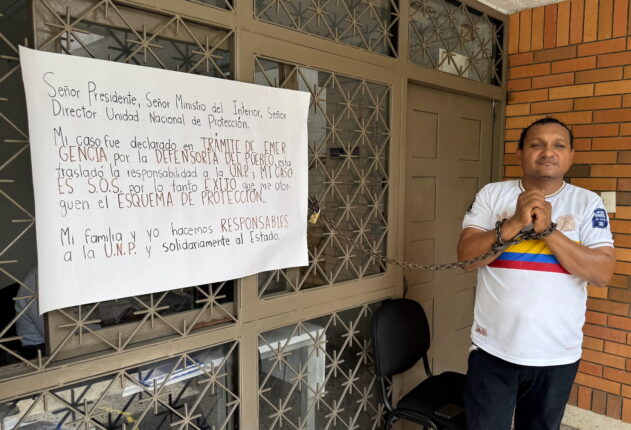 Señor Presidente, Señor Ministro del Interior, Señor
Director Unidad Nacional de Protección.
Mi caso fue declarado en TRÁMITE DE EMER
GENCIA por la DEFENSORÍA DEL PUEBLO, esta
trasladó la responsabilidad a la U.N.P; MI CASO
ES S.O.S. por lo tanto EXIJO que me otor-
guen el ESQUEMA DE PROTECCIÓN.
Mi familia y yo hacemos RESPONSABLES
a la U.N.P. y solidariamente al Estado.